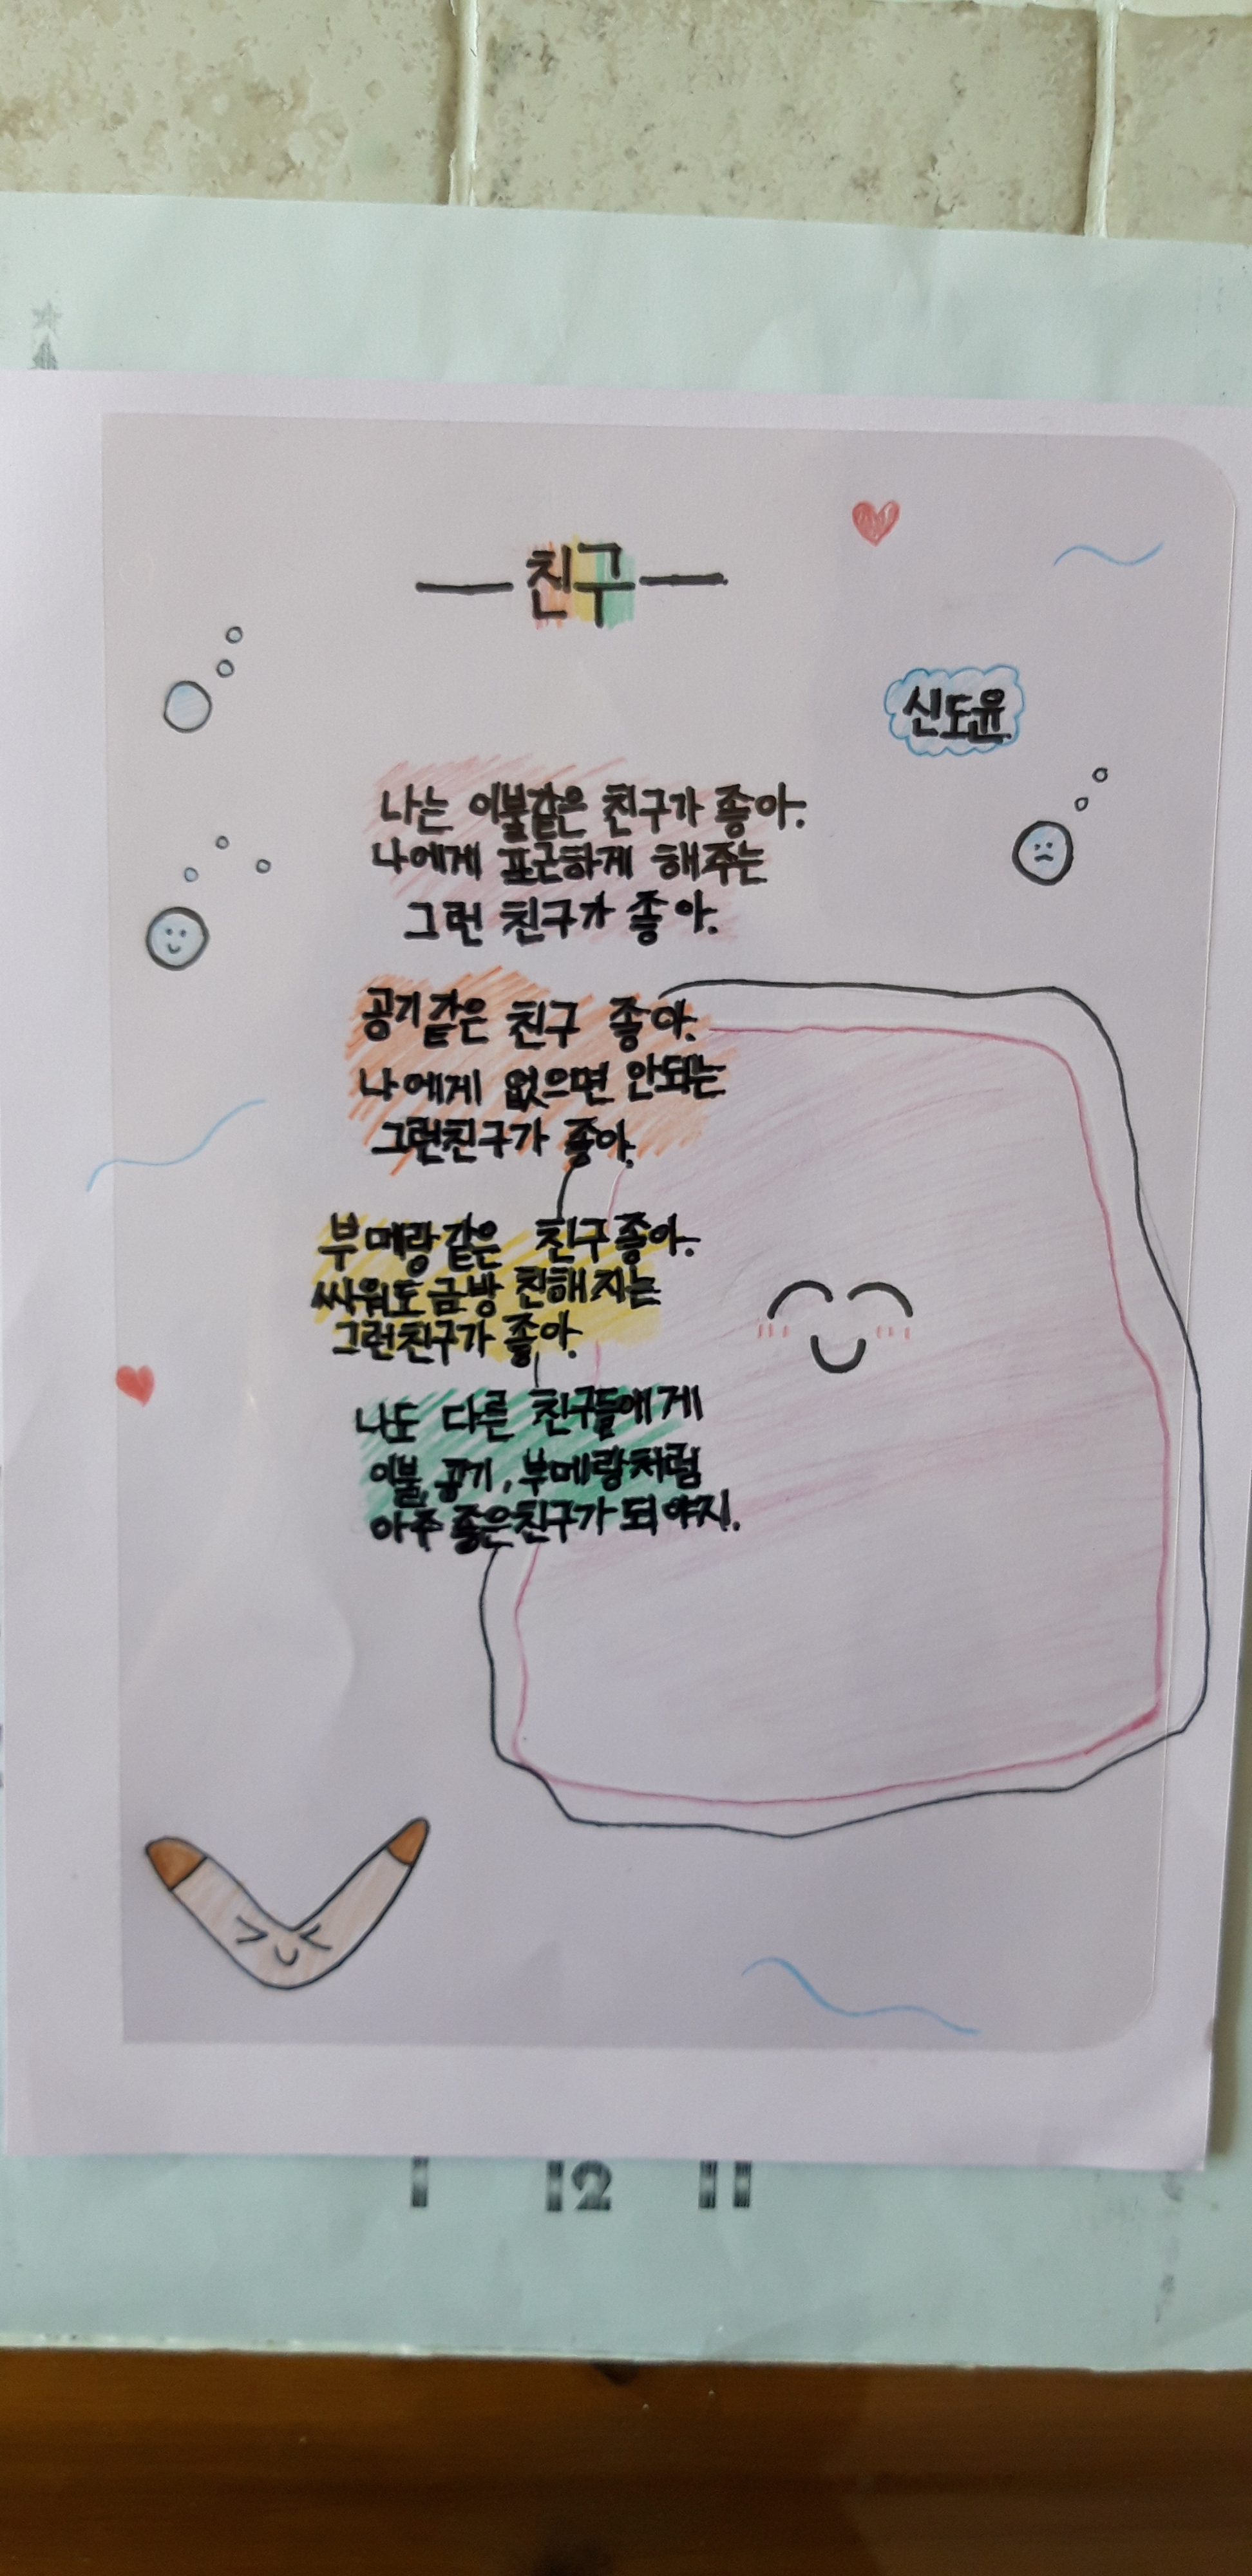 친구
신도윤
나는 이불같은 친구가 좋아.
나에게 포근하게 해주는
그런 친구가 좋아.
공기같은 친구 좋아.
나에게 없으면 안되는
그런친구가 좋아.
부메랑같은 친구좋아.
싸워도 금방 친해지는
그런친구가 좋아.
나도 다른 친구들에게
이불, 공기, 부메랑처럼
아주 좋은친구가 되야지.
1 12 11